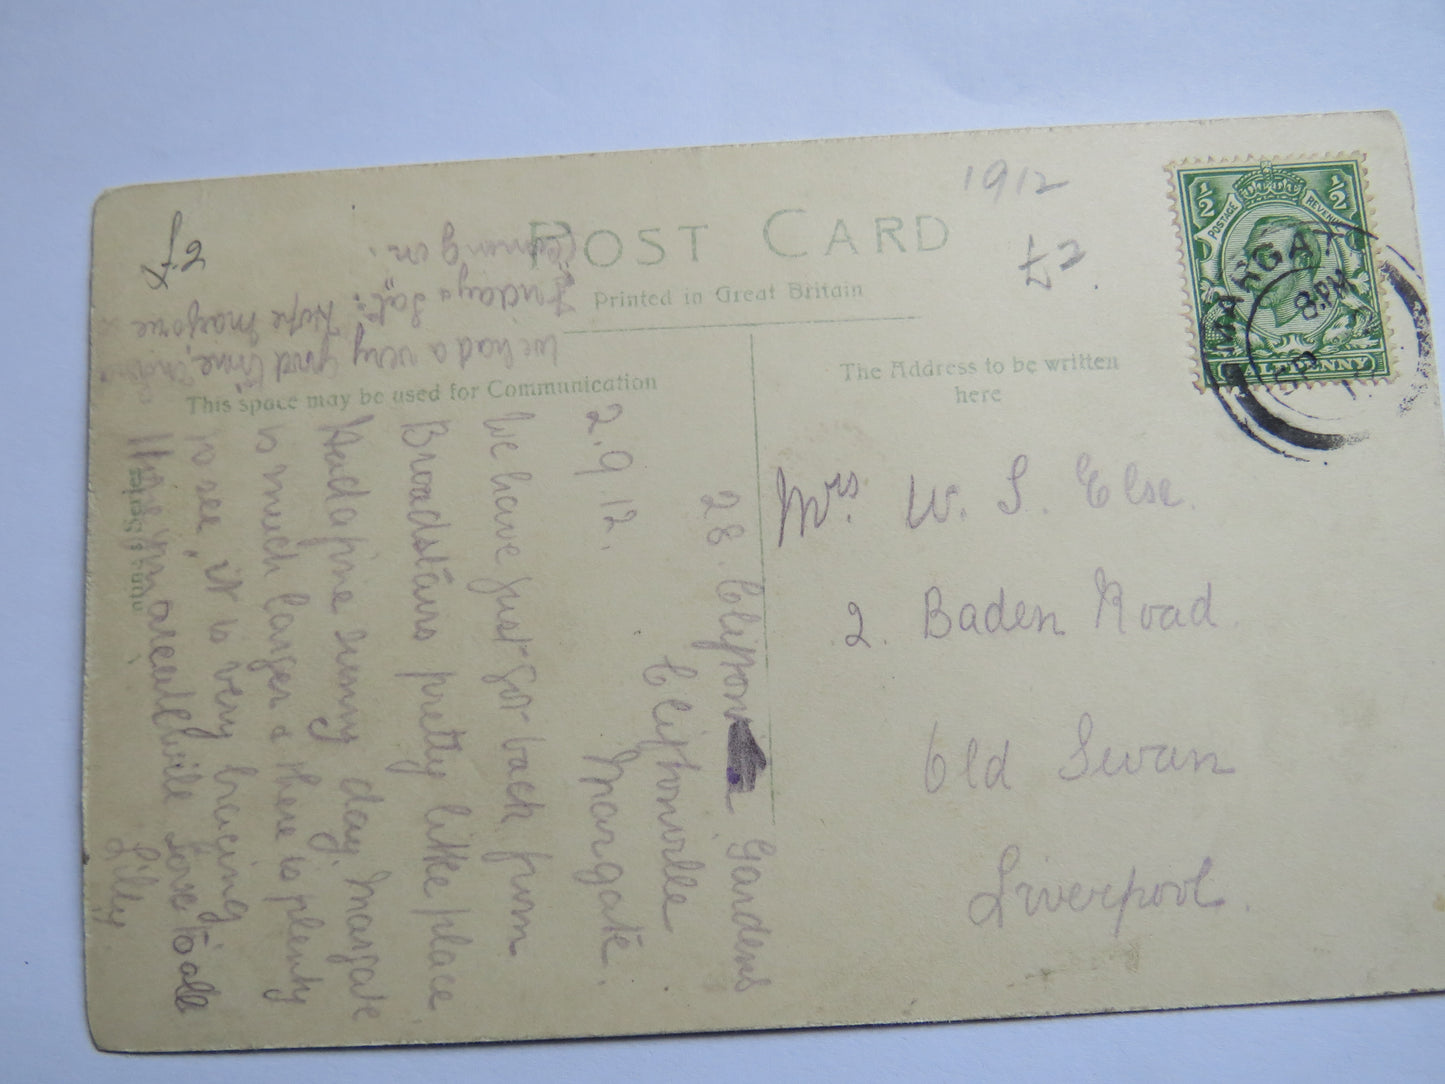 1912
£2
£2.
POST CARD
Printed in Great Britain
This space may be used for Communication
The Address to be written
here
½ ½
POSTAGE REVENUE
HALFPENNY
MARGATE
8.PM
12
Mrs. W. S. Else.
2. Baden Road
Old Swan
Liverpool.
28. Clifton Gardens
Cliftonville
2.9.12. Margate.
We have just got back from
Broadstairs pretty little place
Had a fine sunny day. Margate
is much larger & there is plenty
to see, it is very bracing
Hope you are all well love to all
Lilly.
We had a very good time,
Hope Marjorie
Friday & Sat:
coming on.
Series